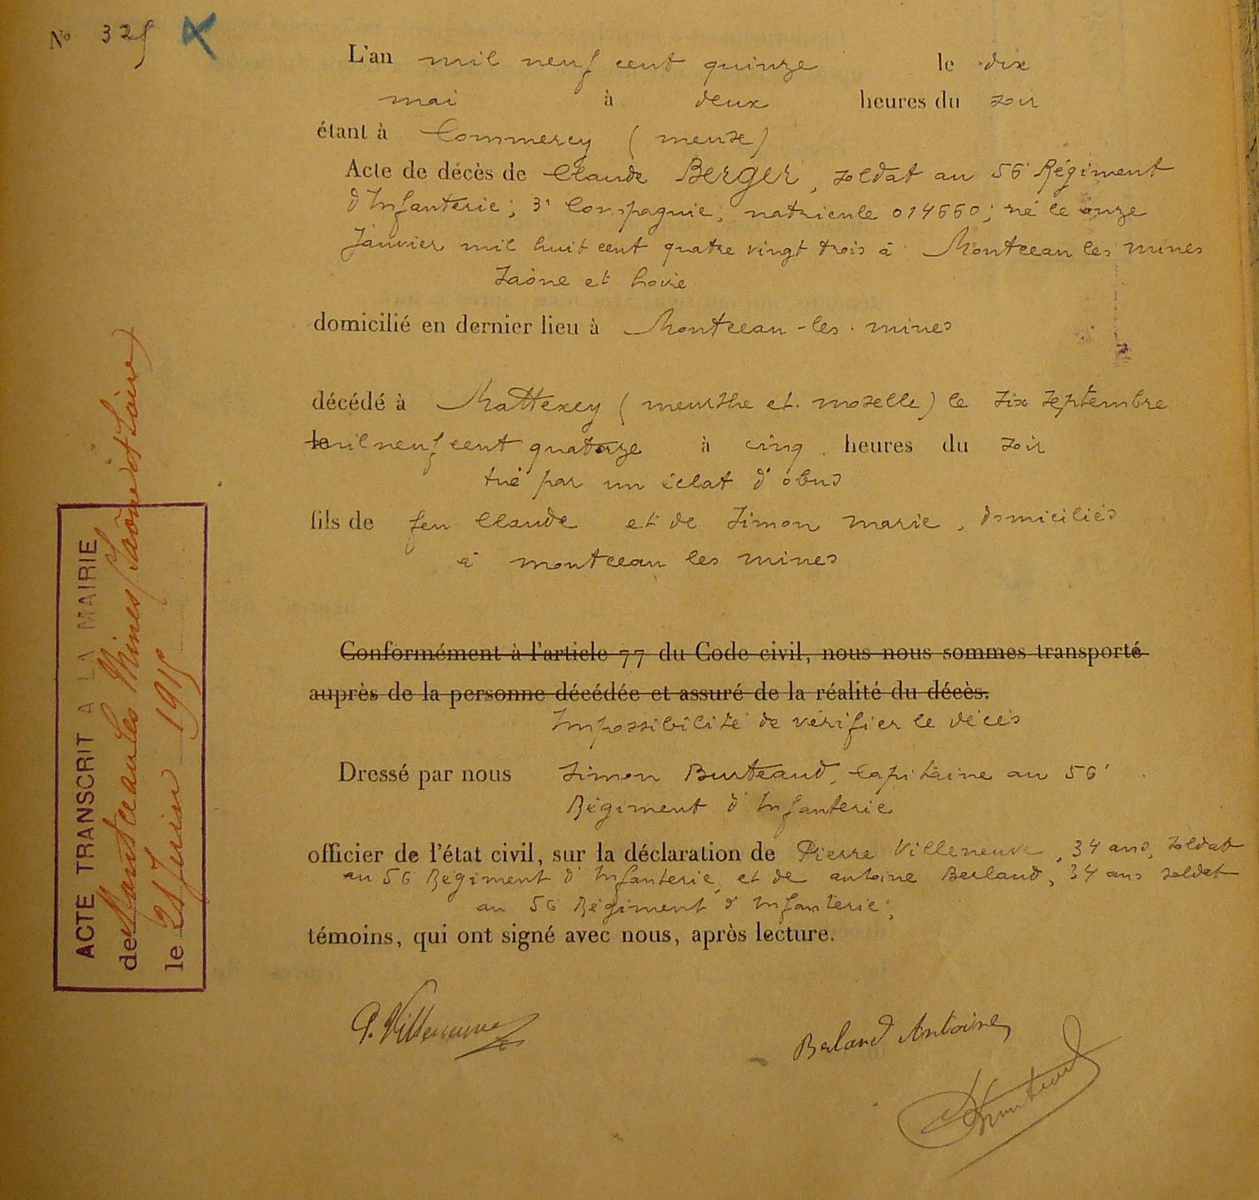 N° 325
L'an mil neuf cent quinze le dix
mai à deux heures du soir
étant à Commercy (meuse)
Acte de décès de Claude BERGER, soldat au 56 Régiment
d'Infanterie; 3e Compagnie; matricule 014660; né le onze
Janvier mil huit cent quatre vingt trois à Montceau les mines
Saône et Loire
domicilié en dernier lieu à Montceau-les-mines
décédé à Mattexey (meurthe et moselle) le six septembre
le mil neuf cent quatorze à cinq heures du soir
tué par un éclat d'obus
fils de feu Claude et de Simon marie, domiciliés
à montceau les mines
Conformément à l'article 77 du Code civil, nous nous sommes transporté
auprès de la personne décédée et assuré de la réalité du décès.
Impossibilité de vérifier le décès
Dressé par nous Simon Burteaud, Capitaine au 56e
Régiment d'Infanterie
officier de l'état civil, sur la déclaration de Pierre Villeneuve, 34 ans, soldat
au 56 Régiment d'Infanterie et de antoine Berland, 34 ans soldat
au 56 Régiment d'Infanterie;
témoins, qui ont signé avec nous, après lecture.
P. Villeneuve
Berland Antoine
ACTE TRANSCRIT A LA MAIRIE
de Montceau les Mines (Saône et Loire)
le 21 Juin 1915